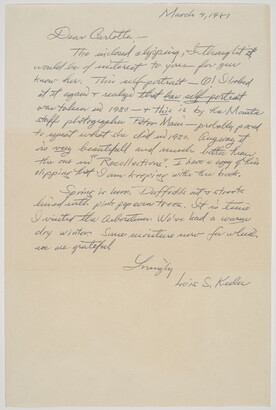 March 4, 19
Dear Carlotta —
The inclosed clipping, I thought
would be of interest to you — for you
know her. This self-portrait — I looked
at it again & realize that her self-portrait
was taken in 1920 — & this is by the
staff photographer — probably posed
to repeat what she did in 1920. Anyway it
is very beautifull and much better than
the one in "Recollections". I have a copy of this
clipping that I am keeping with the book.
Spring is here. Daffodils out & streets
lined with pink popcorn trees. It is time
I visited the Arboretum. We've had a warm
dry winter. Some moisture now for which
we are grateful
Lovingly
S.